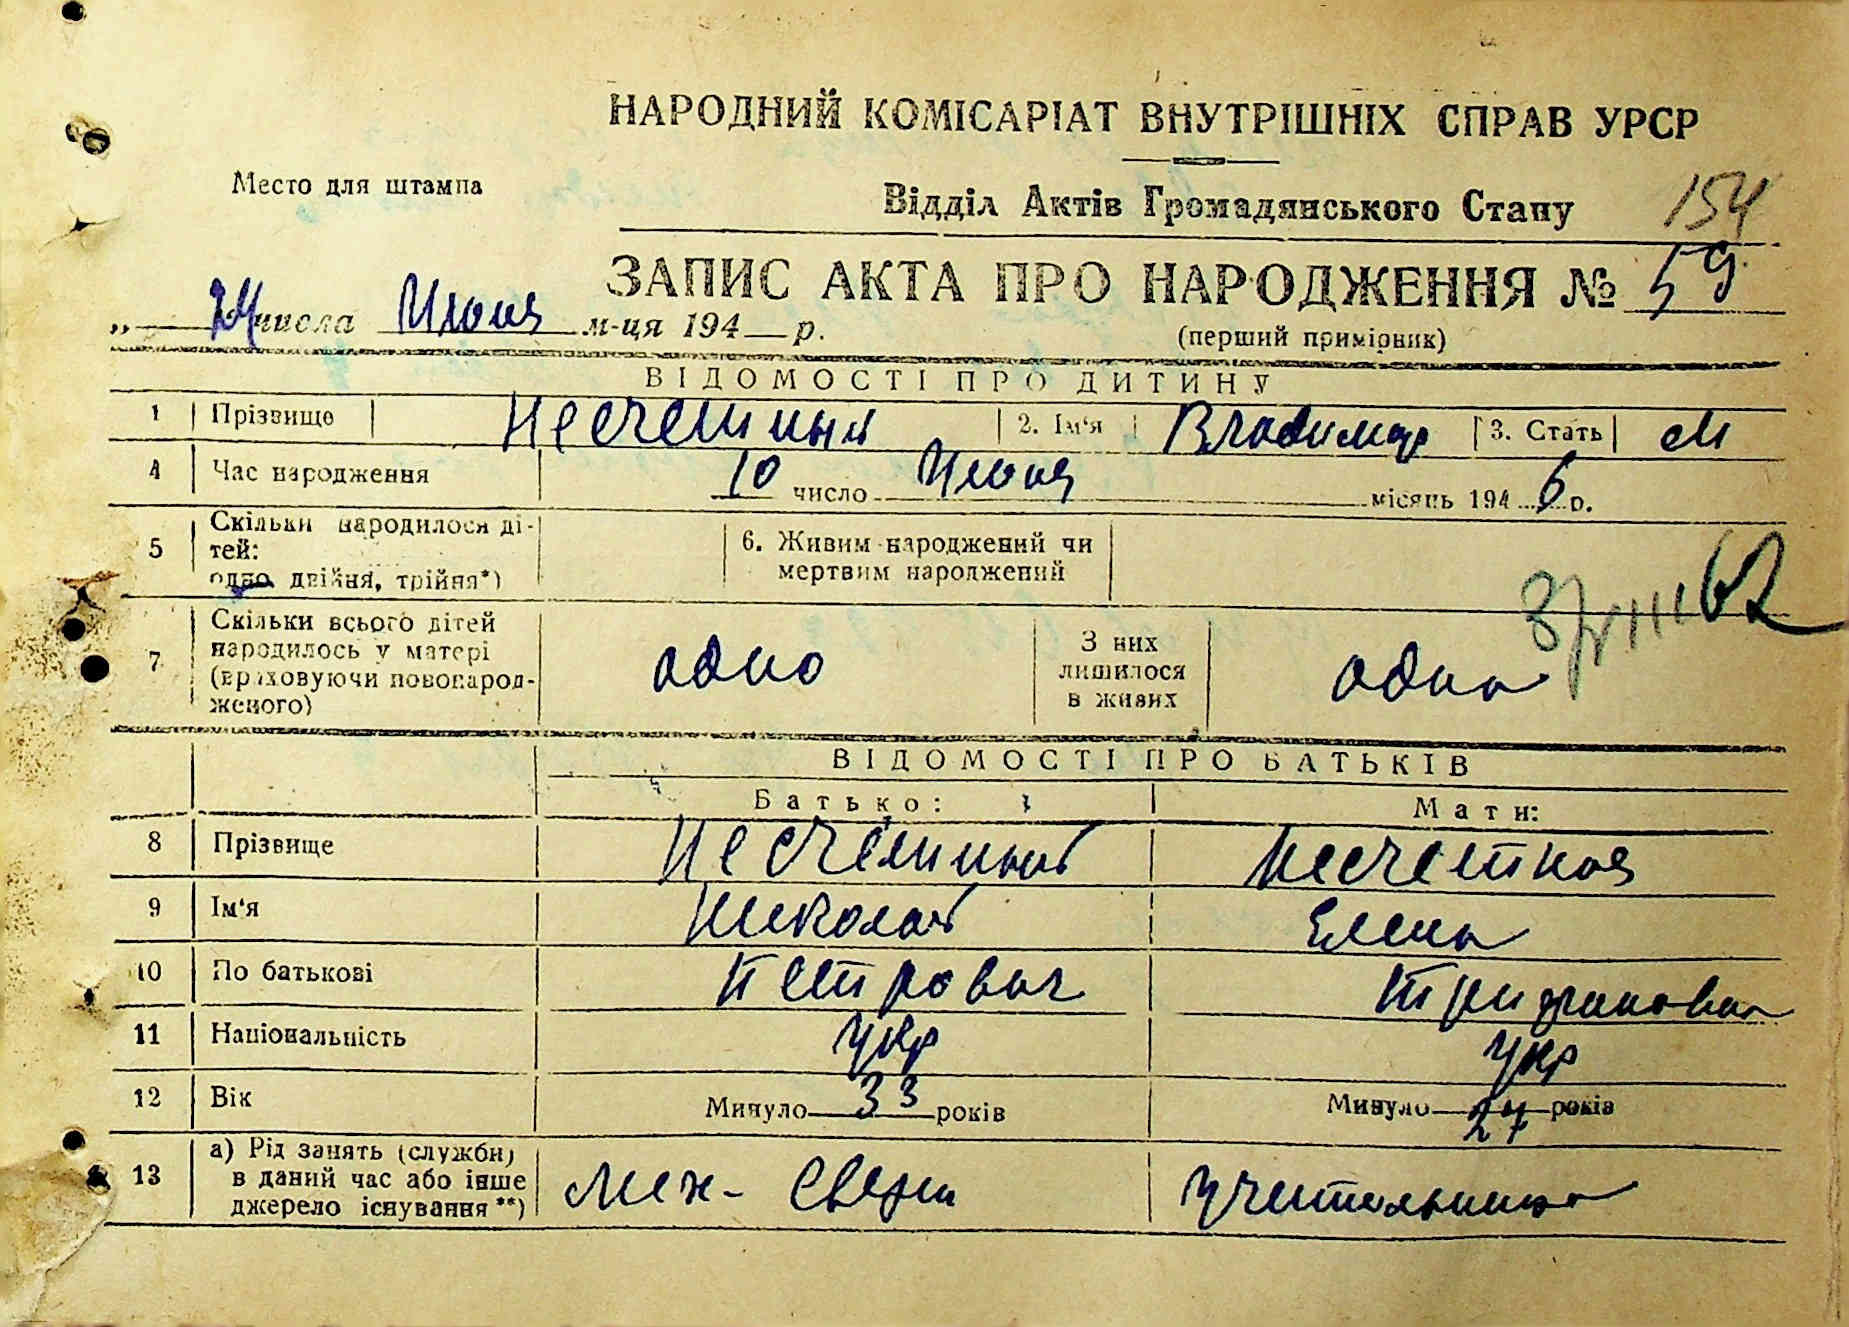 НАРОДНИЙ КОМІСАРІАТ ВНУТРІШНІХ СПРАВ УРСР
Место для штампа
Відділ Актів Громадянського Стану 154
ЗАПИС АКТА ПРО НАРОДЖЕННЯ № 59
„ 24 числа Июня м-ця 194 р.
(перший примірник)
ВІДОМОСТІ ПРО ДИТИНУ
1 Прізвище Несчетный 2. Ім'я Владимир 3. Стать М
4 Час народження 10 число Июня місяць 194 6 р.
5 Скільки народилося дітей: одно, двійня, трійня*) 6. Живим народжений чи мертвим народжений
7 Скільки всього дітей народилось у матері (враховуючи новонародженого) одно З них лишилося в живих одно
ВІДОМОСТІ ПРО БАТЬКІВ
Батько: Мати:
8 Прізвище Несчетный Несчетная
9 Ім'я Николай Елена
10 По батькові Петрович Трифановна
11 Національність укр укр
12 Вік Минуло 33 років Минуло 27 років
13 а) Рід занять (служби) в даний час або інше джерело існування **) мех- учительница